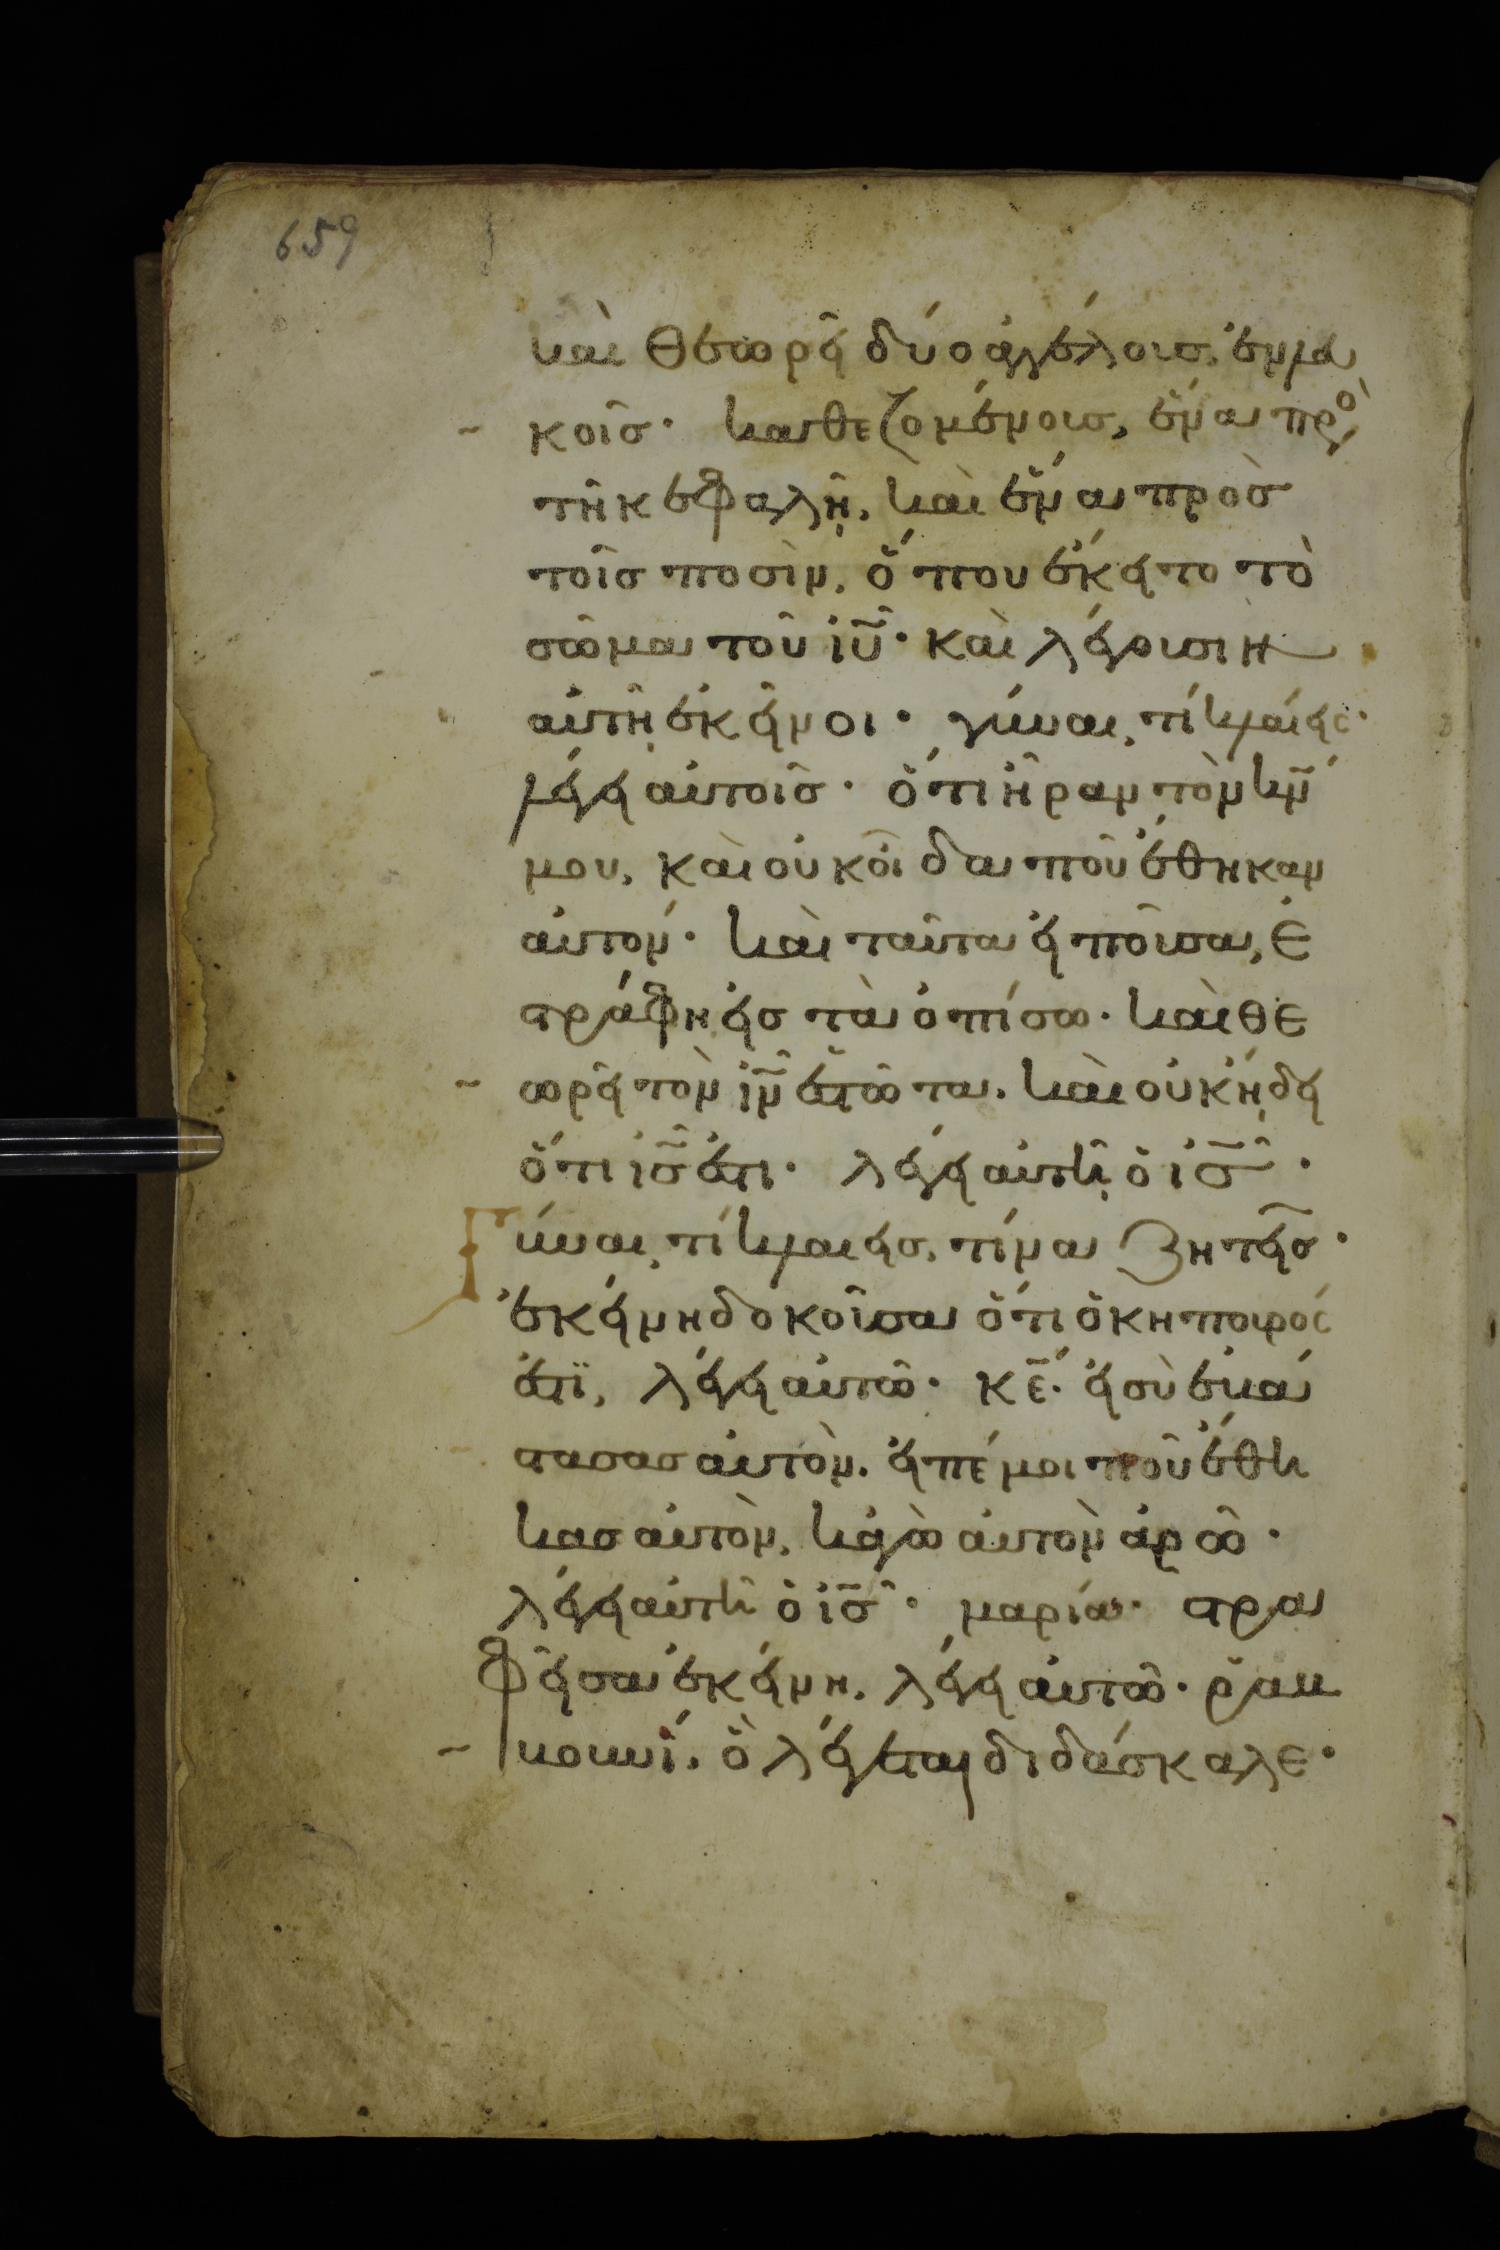 659
καὶ θεωρεῖ δύο ἀγγέλοις, ἐν λευ
κοῖς· καθεζομένοις, ἕνα πρὸ
τῆ κεφαλῆ, καὶ ἕνα πρὸσ
τοῖσ ποσὶν, ὅπου ἔκειτο τὸ
σῶμα τοῦ ἰῦ· καὶ λέγουσιν
αὐτῆ ἐκεῖνοι· γύναι, τί κλαίεις·
λέγει αὐτοῖσ· ὅτι ἦραν τὸν κν̄
μου, καὶ οὐκ οἶδα ποῦ ἔθηκαν
αὐτόν· καὶ ταῦτα εἰποῦσα, ἐ
στράφη εἰσ τὰ ὀπίσω· καὶ θε
ωρεῖ τὸν ἰν̄ ἑστῶτα. καὶ οὐκ ἤδει
ὅτι ἰσ̄ ἐστι· λέγει αὐτῆ ὁ ἰσ̄·
Γύναι, τί κλαιεισ, τίνα ζητεῖσ·
ἐκείνη δοκοῦσα ὅτι ὁ κηπουρός
ἐστϊ, λέγει αὐτῶ· κε̄· εἰ σὺ ἐβά
στασασ αὐτὸν. εἰπέ μοι ποῦ ἔθη
κασ αὐτὸν, κἀγὼ αὐτὸν ἀρῶ·
λέγει αὐτῆ ὁ ἰσ̄· μαρία· στρα
φεῖσα ἐκείνη, λέγει αὐτῶ· ραβ
βουνί, ὃ λέγεται διδάσκαλε·